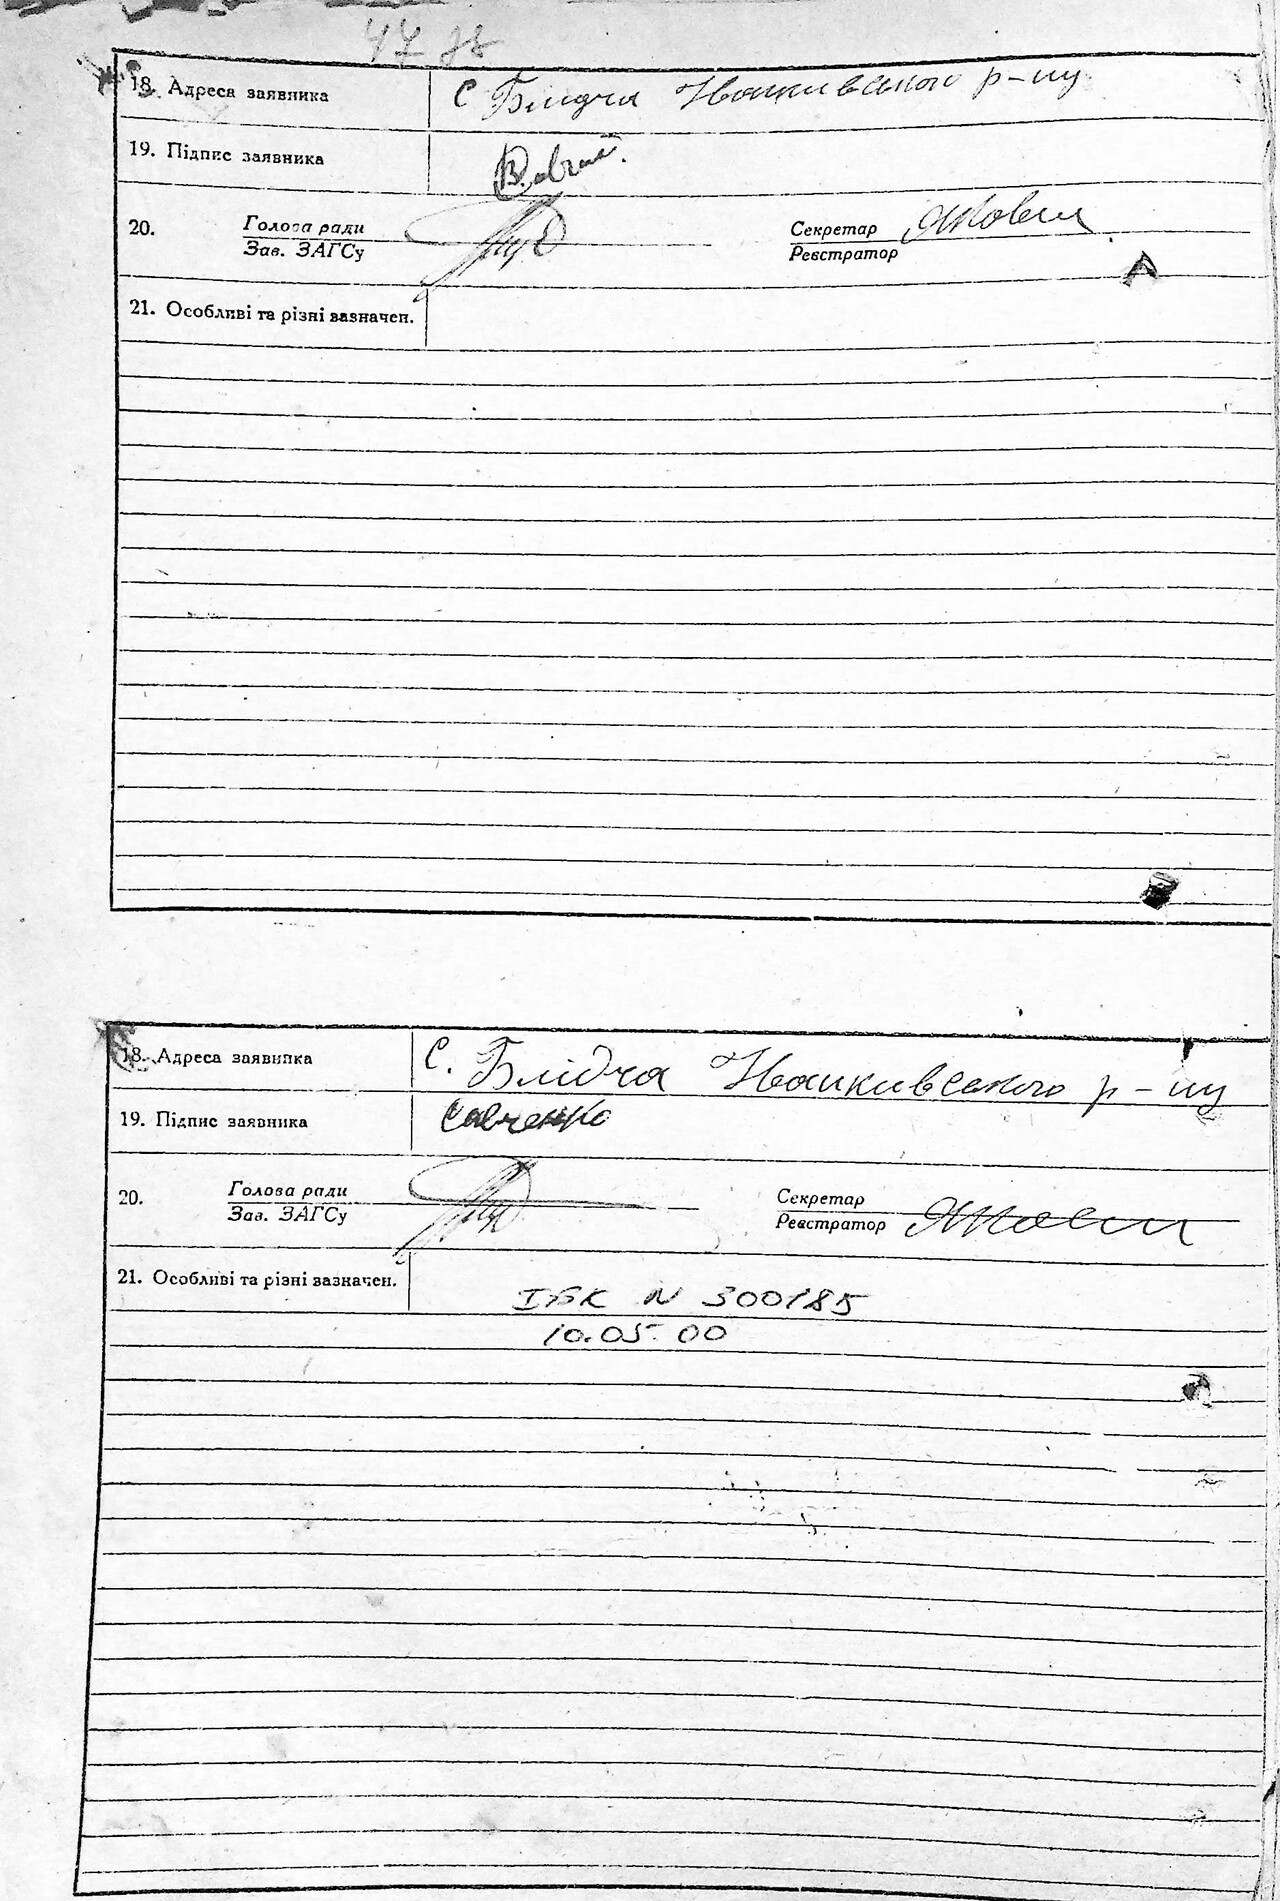 47
18. Адреса заявника
с Блідча Иванкивського р-ну
19. Підпис заявника
20. Голова ради
Зав. ЗАГСу
Секретар
Реєстратор
21. Особливі та різні зазначен.
18. Адреса заявника
с. Блідча Иванкивського р-ну
19. Підпис заявника
Савченко
20. Голова ради
Зав. ЗАГСу
Секретар
Реєстратор
21. Особливі та різні зазначен.
ІБК N 300185
10.05.00